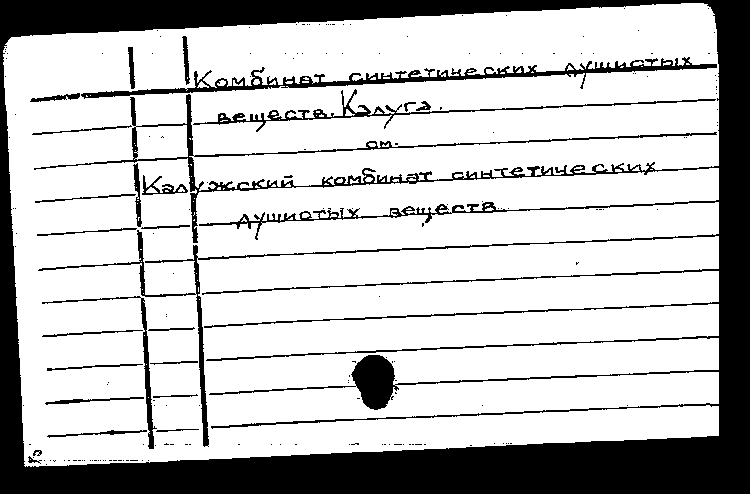 Комбинат синтетических душистых
веществ. Калуга.
см.
Калужский комбинат синтетических
душистых веществ